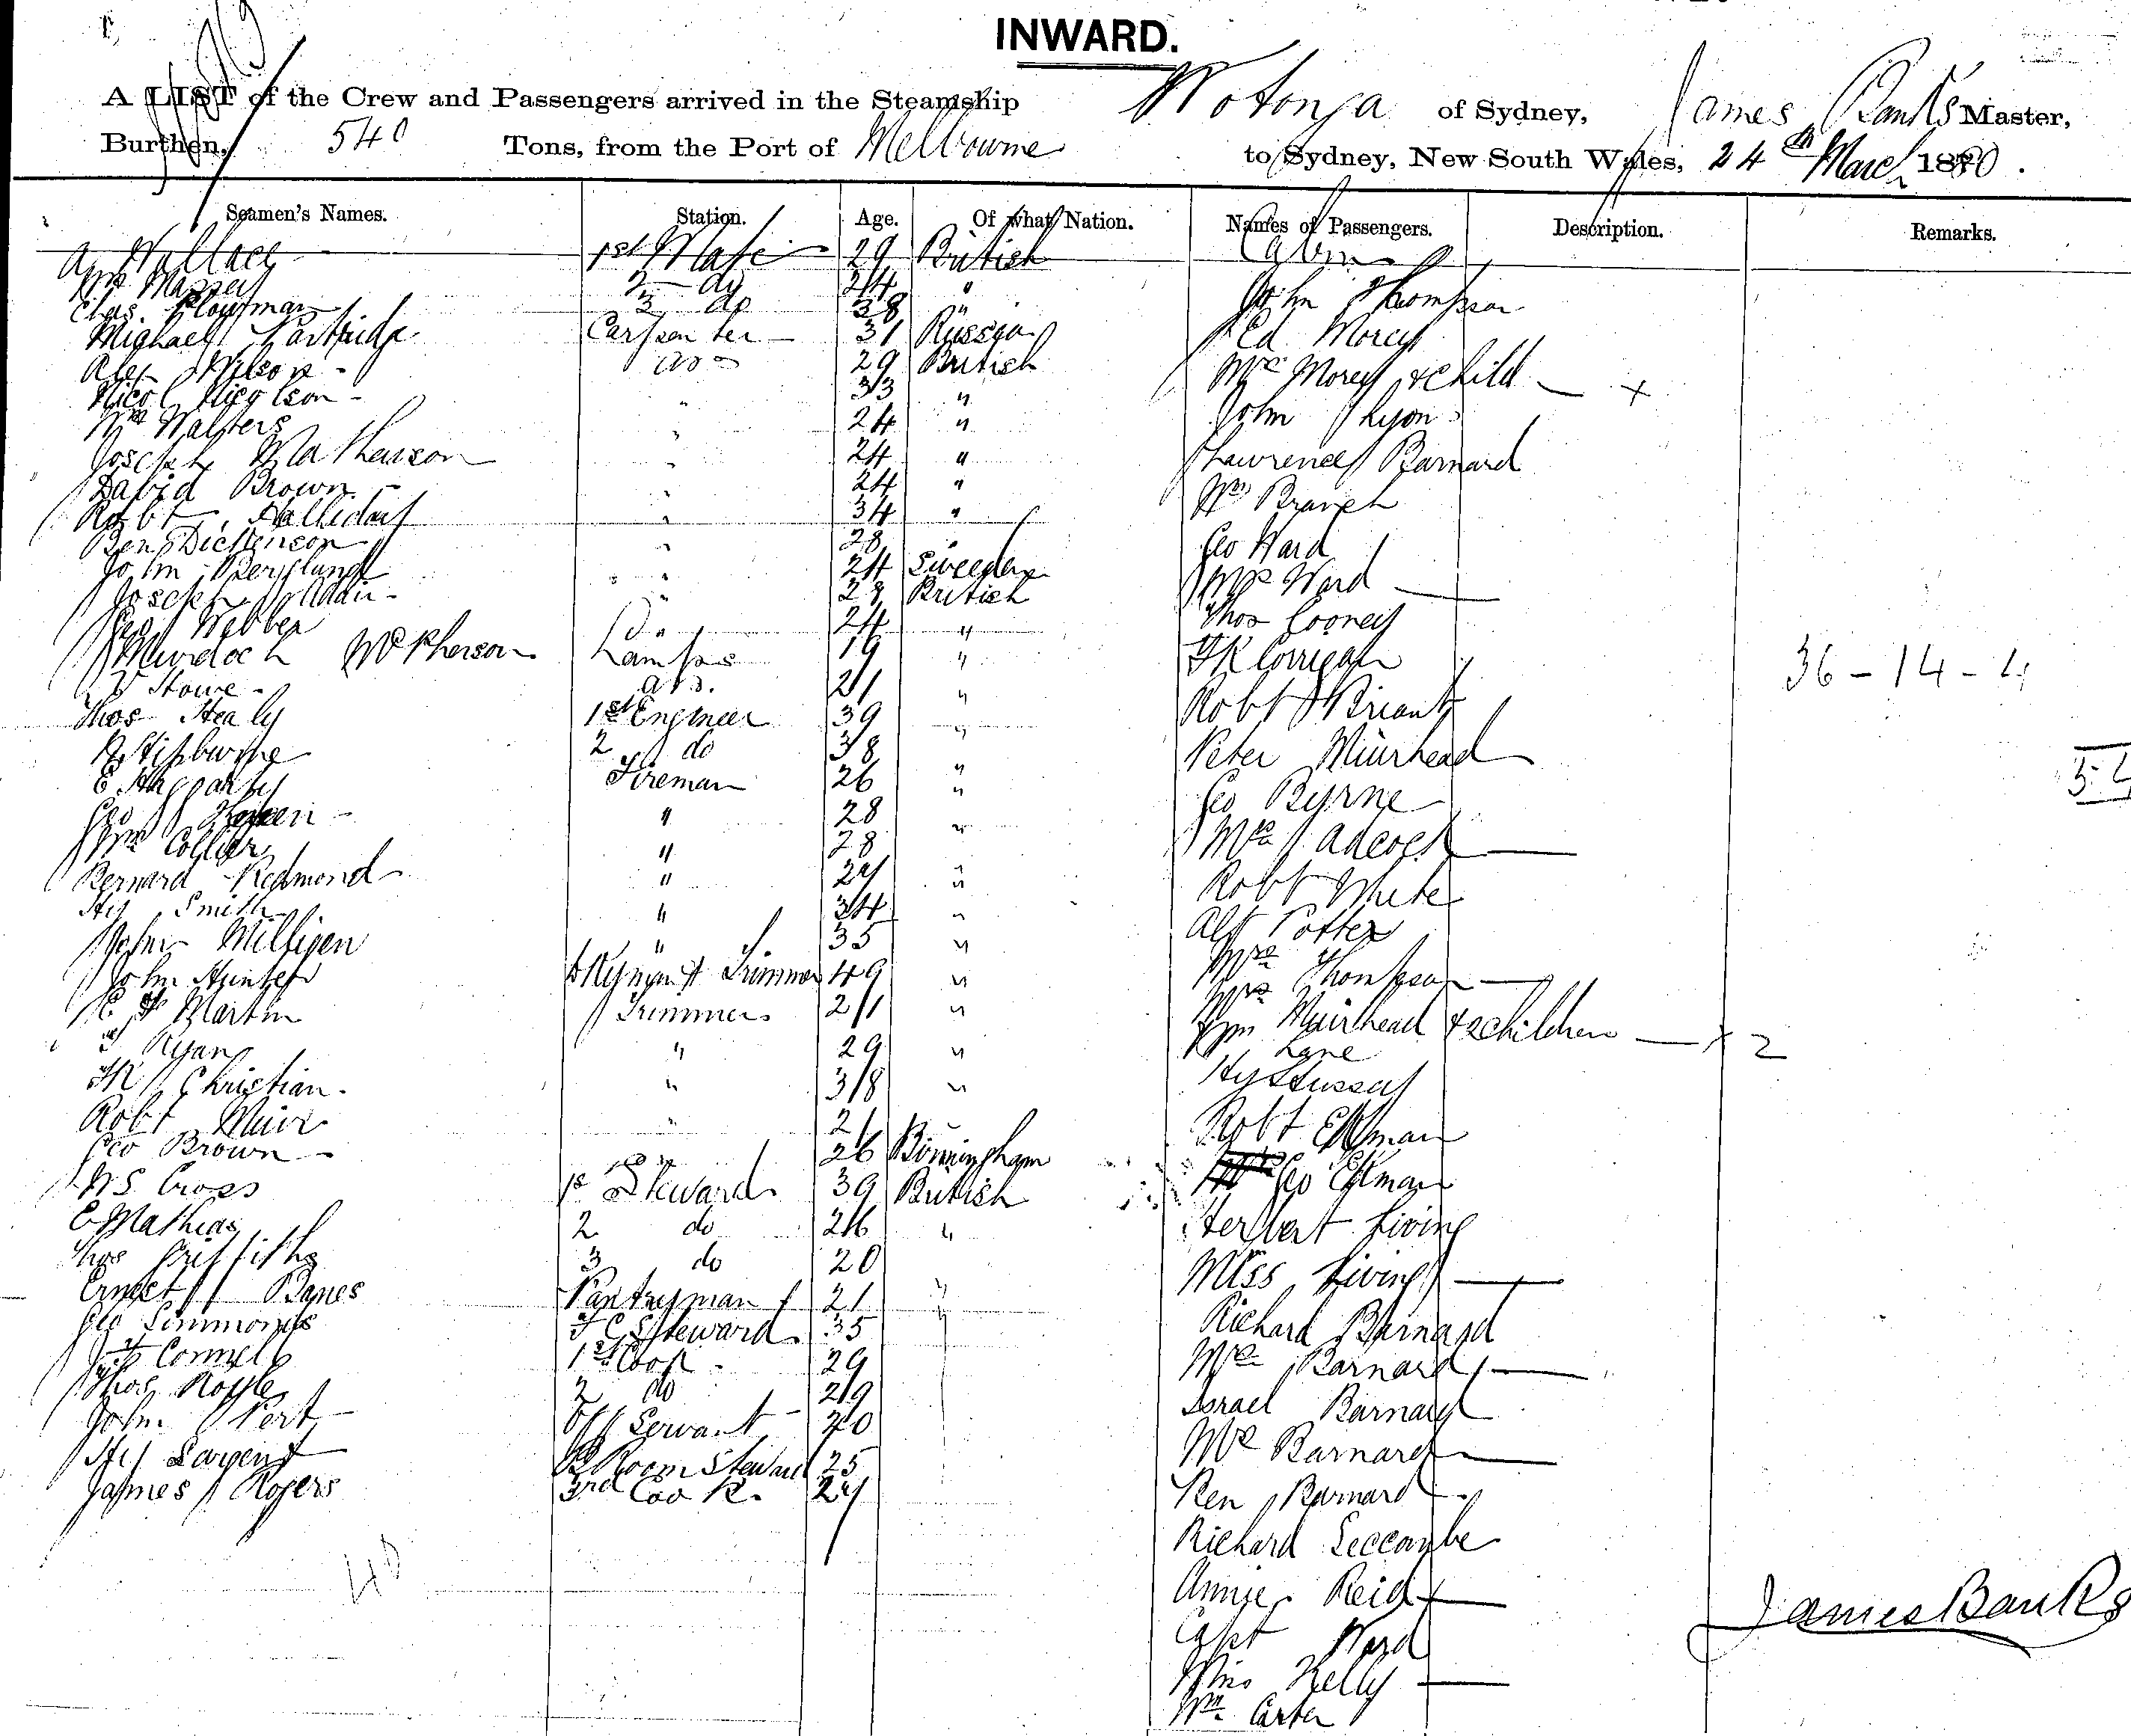 INWARD.
A LIST of the Crew and Passengers arrived in the Steamship Wotonga of Sydney, James Banks Master,
Burthen, 540 Tons, from the Port of Melbourne to Sydney, New South Wales, 24th March 1880.
Seamen's Names. Station. Age. Of what Nation. Names of Passengers. Description. Remarks.
A Wallace 1st Mate 29 British Cabin
Wm Massey 2 do 24 "
Chas. Plowman 3 do 38 " John Thompson
Michael Partridge Carpenter 31 Russian Ed Morey
Alex Wilson AB 29 British Mrs Morey & child +
Nicol Nicolson " 33 "
Wm Walters " 24 " John Lyon
Joseph Matheson " 24 " Lawrence Barnard
David Brown " 24 " Wm Branch
Robt Halliday " 34 "
Ben Dickenson " 28 Geo Ward
John Berglund " 24 Sweeden Mrs Ward
Joseph " 28 British Thos Cooney
Geo Webber Do 24 "
Murdoch McPherson Lamps 19 " Corrigan 36-14-4
Stowe AB. 21 " Robt Briant
Thos Healy 1st Engineer 39 "
2 do 38 " Peter Muirhead
Fireman 26 " Geo Byrne
Geo " 28 "
Wm Collier " 28 " Mrs Adcock
Bernard Redmond " 24 " Robt White
Hy Smith " 34 " Alf Potter
John Milligen " 35 " Mrs Thompson
John Hunter & Trimmer 49 "
Martin Trimmers 21 " Muirhead & 2 children + 2
Ryan " 29 " Lane
Christian " 38 " Hy Hussey
Robt Muir " 21 " Robt Elfman
Geo Brown 26 Birmingham Geo Elfman
W S Cross 1s Steward 39 British
E Mathias 2 do 26 " Herbert Living
Thos Griffiths 3 do 20 Miss Living
Ernest Banes Pantryman 21 " Richard Barnard
Geo Simmonds Steward 35 "
Connell 1st Cook 29 Mrs Barnard
Thos 2 do 29 Israel Barnard
John Off Servant 20 Mrs Barnard
Hy Sargent Room Steward 25
James Rogers 3rd Cook 24 Ben Barnard
40 Richard Seccombe
Annie Reid
James Banks
Capt Ward
Miss Kelly
Wm Carter